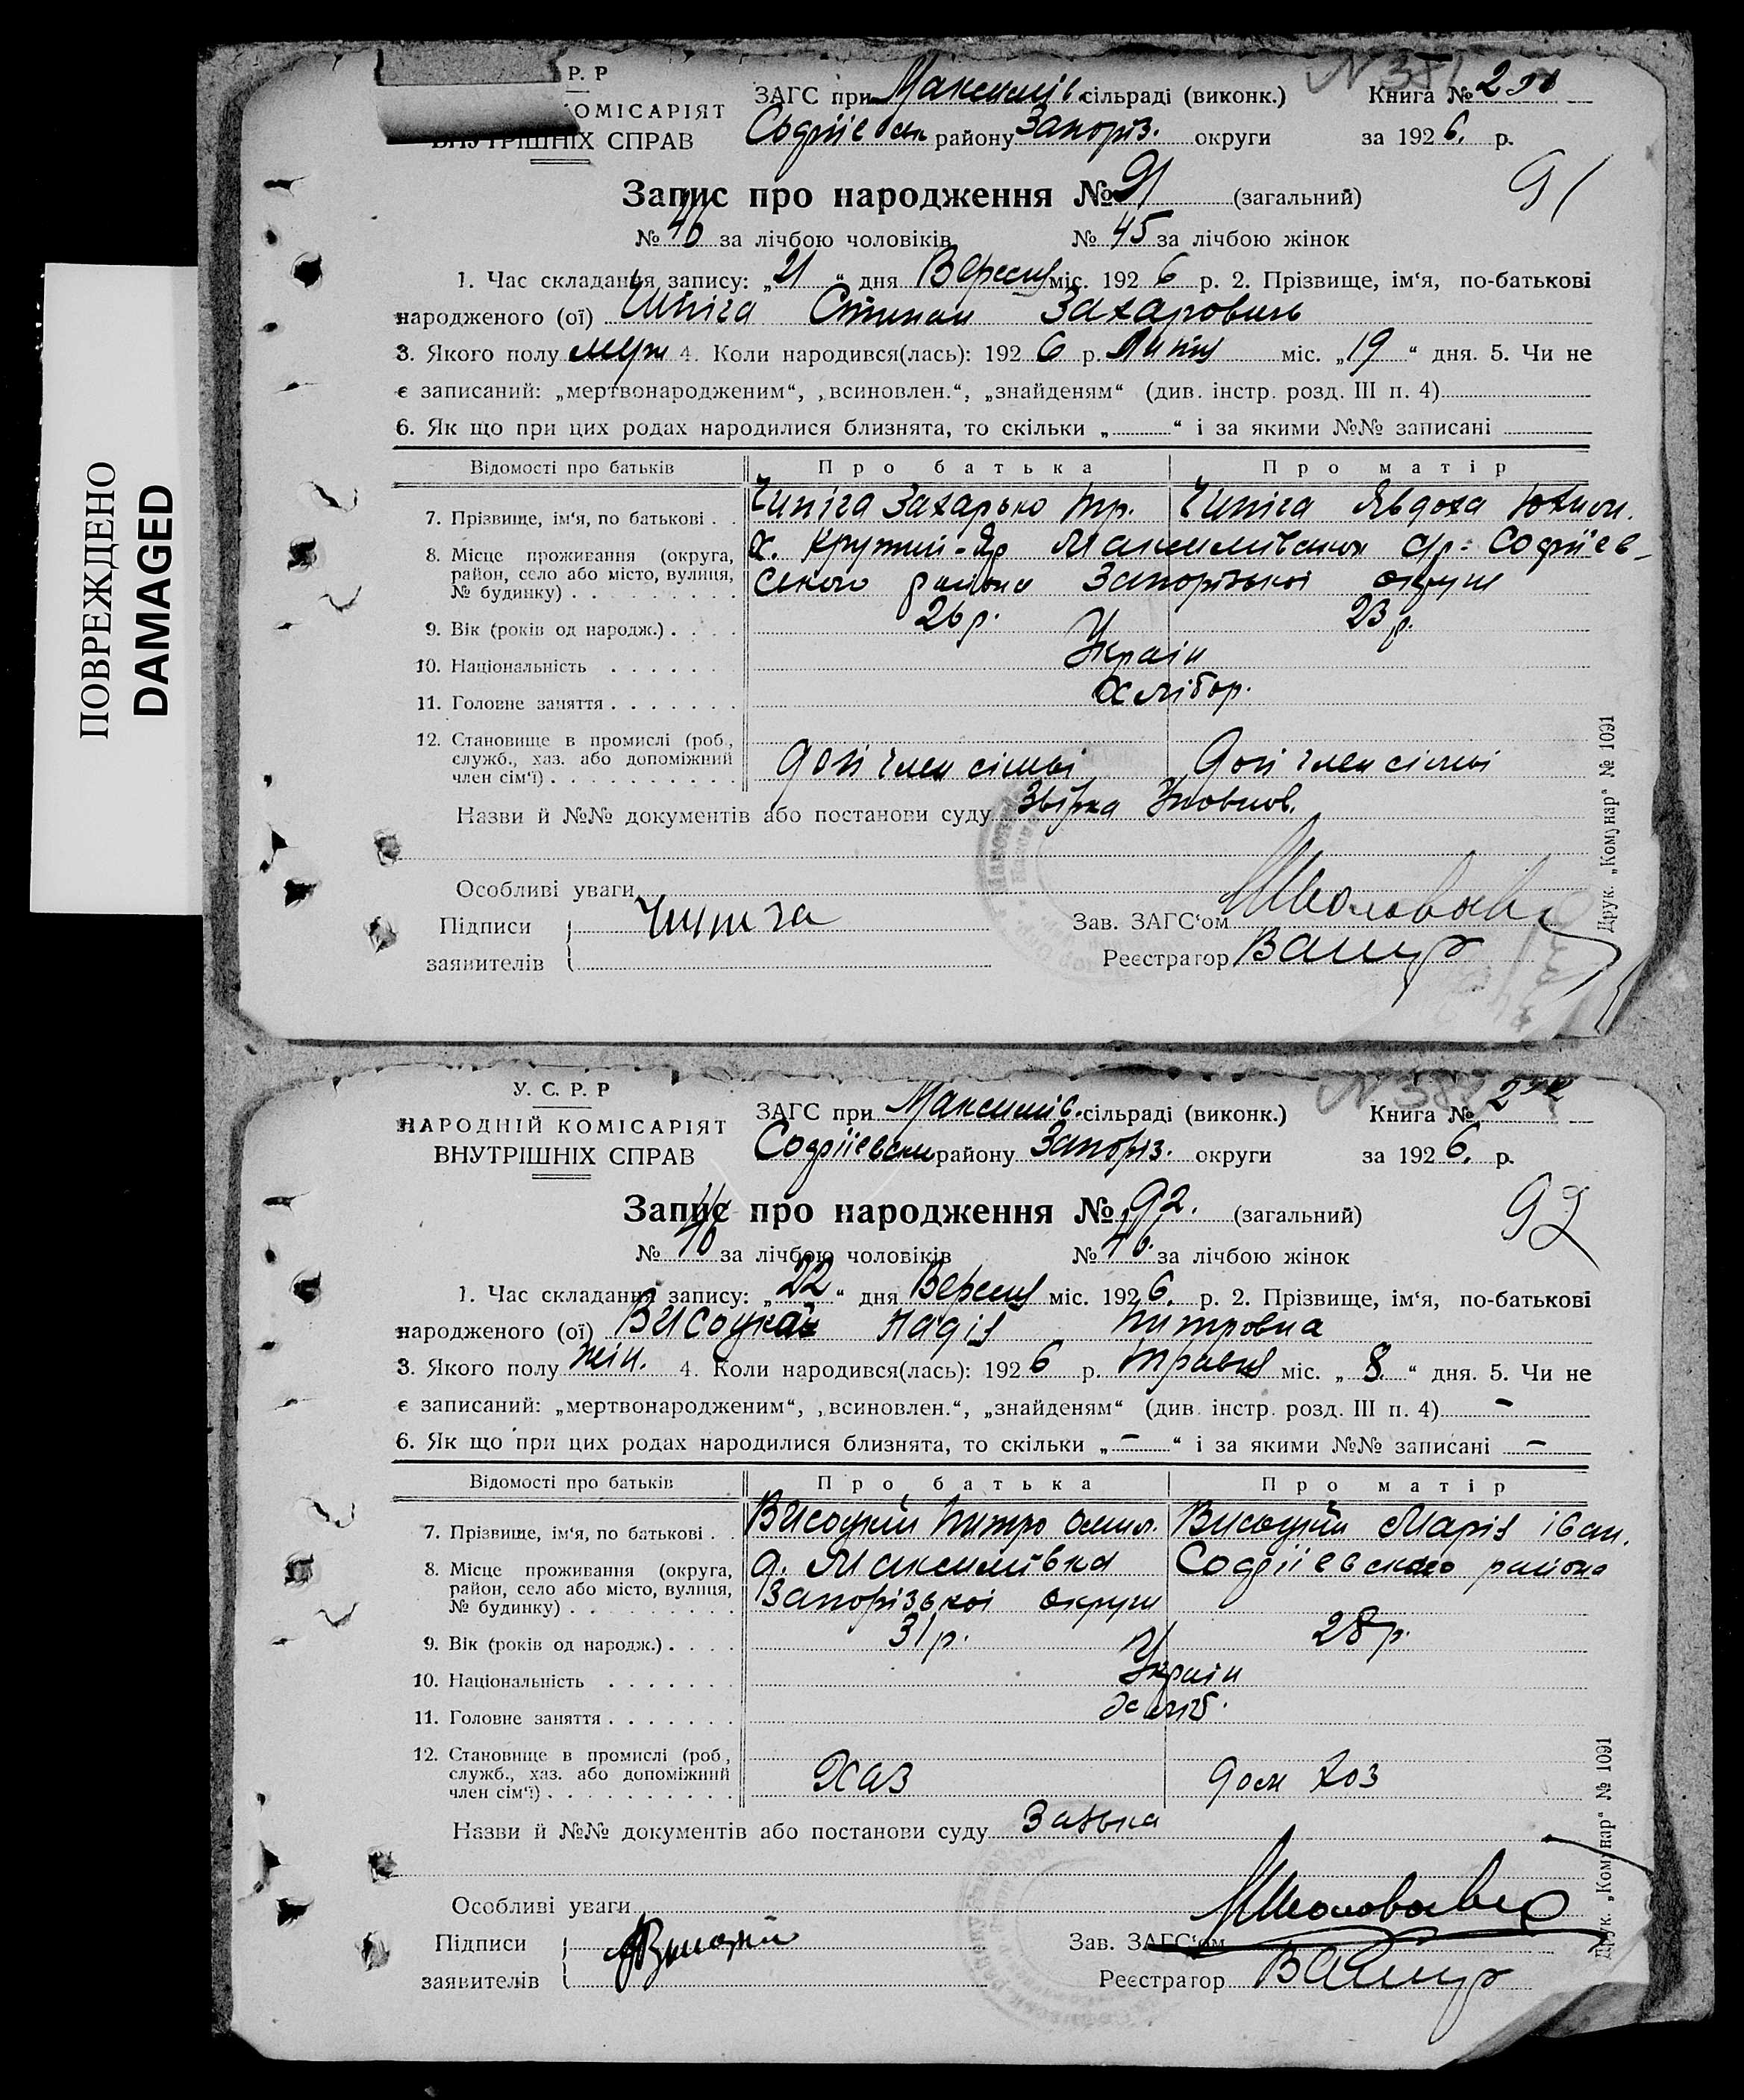 ПОВРЕЖДЕНО
DAMAGED
Р. Р
КОМІСАРІЯТ
ВНУТРІШНІХ СПРАВ
ЗАГС при Максимів. сільраді (виконк.)
Софіївськ району Запоріз. округи
N 381
Книга №
за 1926. р.
91
Запис про народження № 91 (загальний)
№ 46 за лічбою чоловіків № 45 за лічбою жінок
1. Час складання запису: „21“ дня Вересня міс. 1926 р. 2. Прізвище, ім‘я, по-батькові
народженого (ої) Чипіга Степан Захарович
3. Якого полу муж 4. Коли народився(лась): 1926 р. Липня міс. „19“ дня. 5. Чи не
є записаний: „мертвонародженим“, „всиновлен.“, „знайденям“ (див. інстр. розд. III п. 4)
6. Як що при цих родах народилися близнята, то скільки „ “ і за якими №№ записані
Відомості про батьків Про батька Про матір
7. Прізвище, ім‘я, по батькові . . Чипіга Захарько Чипіга Явдоха Юхим.
8. Місце проживання (округа, район, село або місто, вулиця, № будинку) х. Крутий-Яр Максимівської с/р. Софіїв-
ського района Запорізької округи
9. Вік (років од народж.) 26 р. 23 р.
10. Національність Україн
11. Головне заняття Хлібор.
12. Становище в промислі (роб., служб., хаз. або допоміжний член сім‘ї) член сімьї член сімьї
Назви й №№ документів або постанови суду
Особливі уваги
Підписи заявителів Чипіга
Зав. ЗАГС‘ом
Реєстратор
Друк. „Комунар“ № 1091
У. С. Р. Р
НАРОДНІЙ КОМІСАРІЯТ
ВНУТРІШНІХ СПРАВ
ЗАГС при Максимів. сільраді (виконк.)
Софіївськ району Запоріз. округи
Книга №
за 1926. р.
92
Запис про народження № 92. (загальний)
№ 46 за лічбою чоловіків № 46. за лічбою жінок
1. Час складання запису: „22“ дня Вересня міс. 1926. р. 2. Прізвище, ім‘я, по-батькові
народженого (ої) Висоцкая Надія Питровна
3. Якого полу жін. 4. Коли народився(лась): 1926 р. Травня міс. „8.“ дня. 5. Чи не
є записаний: „мертвонародженим“, „всиновлен.“, „знайденям“ (див. інстр. розд. III п. 4) –
6. Як що при цих родах народилися близнята, то скільки „–“ і за якими №№ записані –
Відомості про батьків Про батька Про матір
7. Прізвище, ім‘я, по батькові . . Висоцкий Питро Висоцкий Марія Іван.
8. Місце проживання (округа, район, село або місто, вулиця, № будинку) с. Максимівка Софіївського района
Запорізької округи
9. Вік (років од народж.) 31 р. 28 р.
10. Національність Україн
11. Головне заняття Хліб.
12. Становище в промислі (роб., служб., хаз. або допоміжний член сім‘ї) Хаз дом хоз
Назви й №№ документів або постанови суду Заявка
Особливі уваги
Підписи заявителів
Зав. ЗАГС‘ом
Реєстратор
Друк. „Комунар“ № 1091